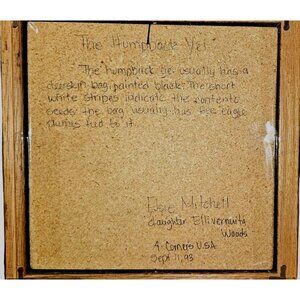 The Humpback Yei
The humpback yei usually has a
deerskin bag, painted black. The short
white stripes indicate the contents
seeds. the bag usually has eagle
plumes tied to it
Elsie Mitchell
daughter
Woods
4-Corners U.S.A
Sept 11, 93